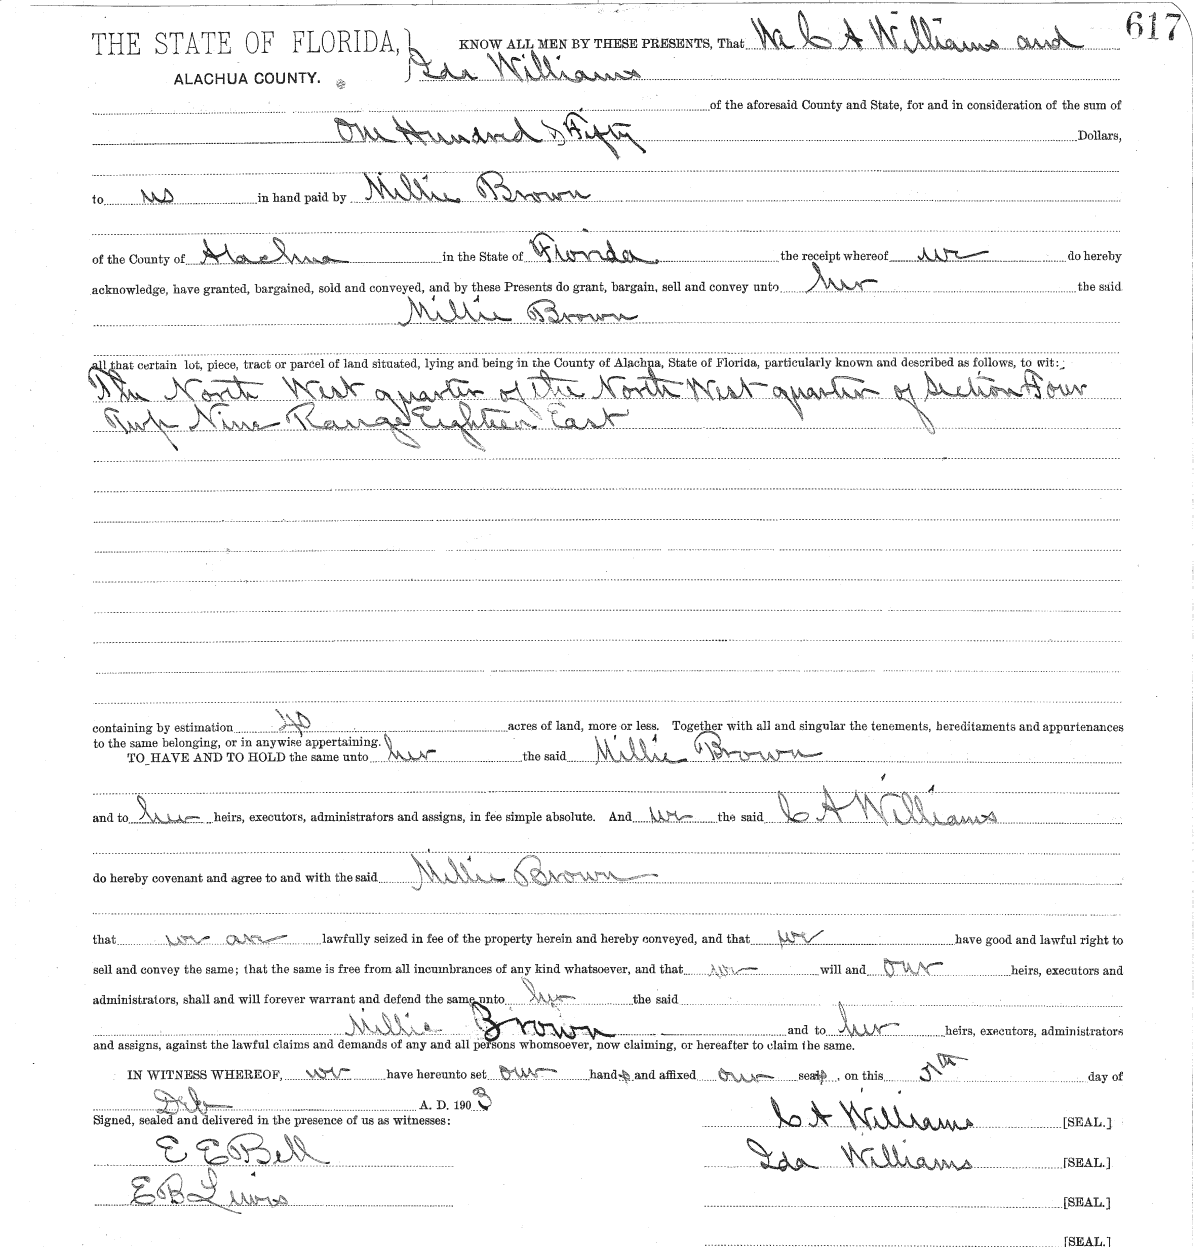 617
THE STATE OF FLORIDA, } KNOW ALL MEN BY THESE PRESENTS, That We C A Williams and
ALACHUA COUNTY. Ida Williams
of the aforesaid County and State, for and in consideration of the sum of
One Hundred & Fifty Dollars,
to us in hand paid by Millie Brown
of the County of Alachua in the State of Florida the receipt whereof we do hereby
acknowledge, have granted, bargained, sold and conveyed, and by these Presents do grant, bargain, sell and convey unto her the said
Millie Brown
all that certain lot, piece, tract or parcel of land situated, lying and being in the County of Alachua, State of Florida, particularly known and described as follows, to wit:
The North West quarter of the North West quarter of Section Four
Twp Nine Range Eighteen East
containing by estimation 40 acres of land, more or less. Together with all and singular the tenements, hereditaments and appurtenances
to the same belonging, or in anywise appertaining.
TO HAVE AND TO HOLD the same unto her the said Millie Brown
and to her heirs, executors, administrators and assigns, in fee simple absolute. And we the said C A Williams
do hereby covenant and agree to and with the said Millie Brown
that we are lawfully seized in fee of the property herein and hereby conveyed, and that we have good and lawful right to
sell and convey the same; that the same is free from all incumbrances of any kind whatsoever, and that we will and our heirs, executors and
administrators, shall and will forever warrant and defend the same unto her the said
Millie Brown and to her heirs, executors, administrators
and assigns, against the lawful claims and demands of any and all persons whomsoever, now claiming, or hereafter to claim the same.
IN WITNESS WHEREOF, we have hereunto set our hands and affixed our seals, on this 5th day of
Deb A. D. 1903
Signed, sealed and delivered in the presence of us as witnesses: C A Williams [SEAL.]
E E Bell Ida Williams [SEAL.]
E B [SEAL.]
[SEAL.]